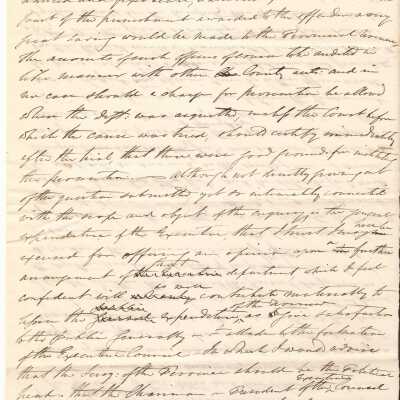 part of the punishment awarded to the offender a very
great saving would be made to the Provincial revenue
the accounts of such officers of course to be audited in
like manner with other County accts and in
no case should a charge for prosecution be allowed
where the deft was acquitted, unless the Court before
which the cause was tried, should certify immediately
after the trial, that there were good grounds for instituting
the prosecution — although not directly growing out
of the question submitted yet so intimately connected
with the scope and object of the enquiry, in the general
expenditure of the Executive that I trust I may be
excused for offering an opinion upon further
arrangement of that department which I feel
confident will contribute materially to
reform the expenditure, as give satisfaction
to the Public generally — attached to the formation
of the Executive Council — In what I would advise
that the Secy of the Province should be the Political
head & that the Chairman or President of the Executive Council